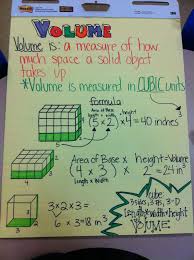 VOLUME
Volume is: a measure of how
much space a solid object
takes up
*Volume is measured in CUBIC units
formula
Area of Base
length x width
height
(5 x 2) x 4 = 40 inches
5
2
Area of Base x height = Volume
(4 x 3) x 2 = 24 in³
length x Width
3x2x3=
6 x 3 = 18 in³
3
2
3
Cube:
Length x Width x height
VOLUME